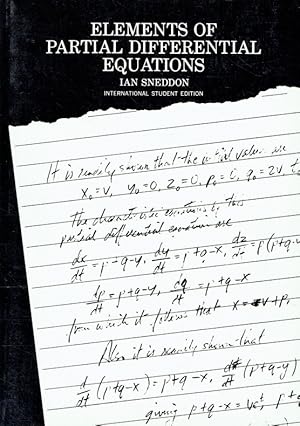 ELEMENTS OF
PARTIAL DIFFERENTIAL
EQUATIONS
IAN SNEDDON
INTERNATIONAL STUDENT EDITION
It is readily shown that the initial values are
x₀=v, y₀=0, z₀=0, p₀=0, q₀=2v,
The characteristic equations of this
partial differential equation are
dx/dt = p+q-y, dy/dt = p+q-x, dz/dt = p(p+q-y
dp/dt = p+q-y, dq/dt = p+q-x
from which it follows that x = v+p,
Also it is readily shown that
d/dt (p+q-x) = p+q-x, d/dt (p+q-y)
giving p+q-x = ve^t, p+q-